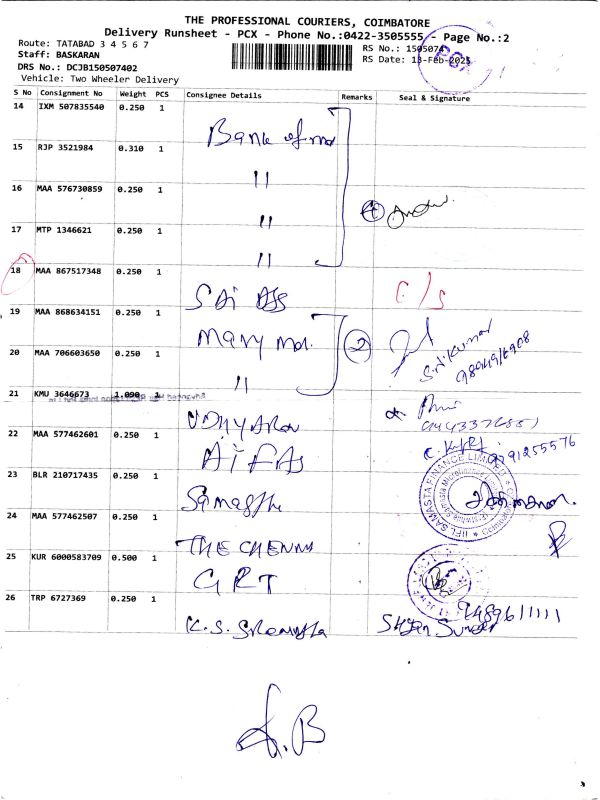 THE PROFESSIONAL COURIERS, COIMBATORE
Delivery Runsheet - PCX - Phone No.:0422-3505555 - Page No.:2
Route: TATABAD 3 4 5 6 7
RS No.: 1505074
Staff: BASKARAN
RS Date: 13-Feb-2025
DRS No.: DCJB150507402
Vehicle: Two Wheeler Delivery
S No Consignment No Weight PCS Consignee Details Remarks Seal & Signature
14 IXM 507835540 0.250 1
Bank of
15 RJP 3521984 0.310 1
"
16 MAA 576730859 0.250 1
" 4
17 MTP 1346621 0.250 1
"
18 MAA 867517348 0.250 1
SAi C/S
19 MAA 868634151 0.250 1
Mary 2
20 MAA 706603650 0.250 1
" Srikumar
21 KMU 3646673 1.090 1
UDHYAROM
22 MAA 577462601 0.250 1
AiFAS 9791255576
23 BLR 210717435 0.250 1
IIFL SAMASTA FINANCE LIMITED
24 MAA 577462507 0.250 1
THE CHENNAI
25 KUR 6000583709 0.500 1
GRT
26 TRP 6727369 0.250 1
9489611111
K.S. Shyam Sunder
A.B